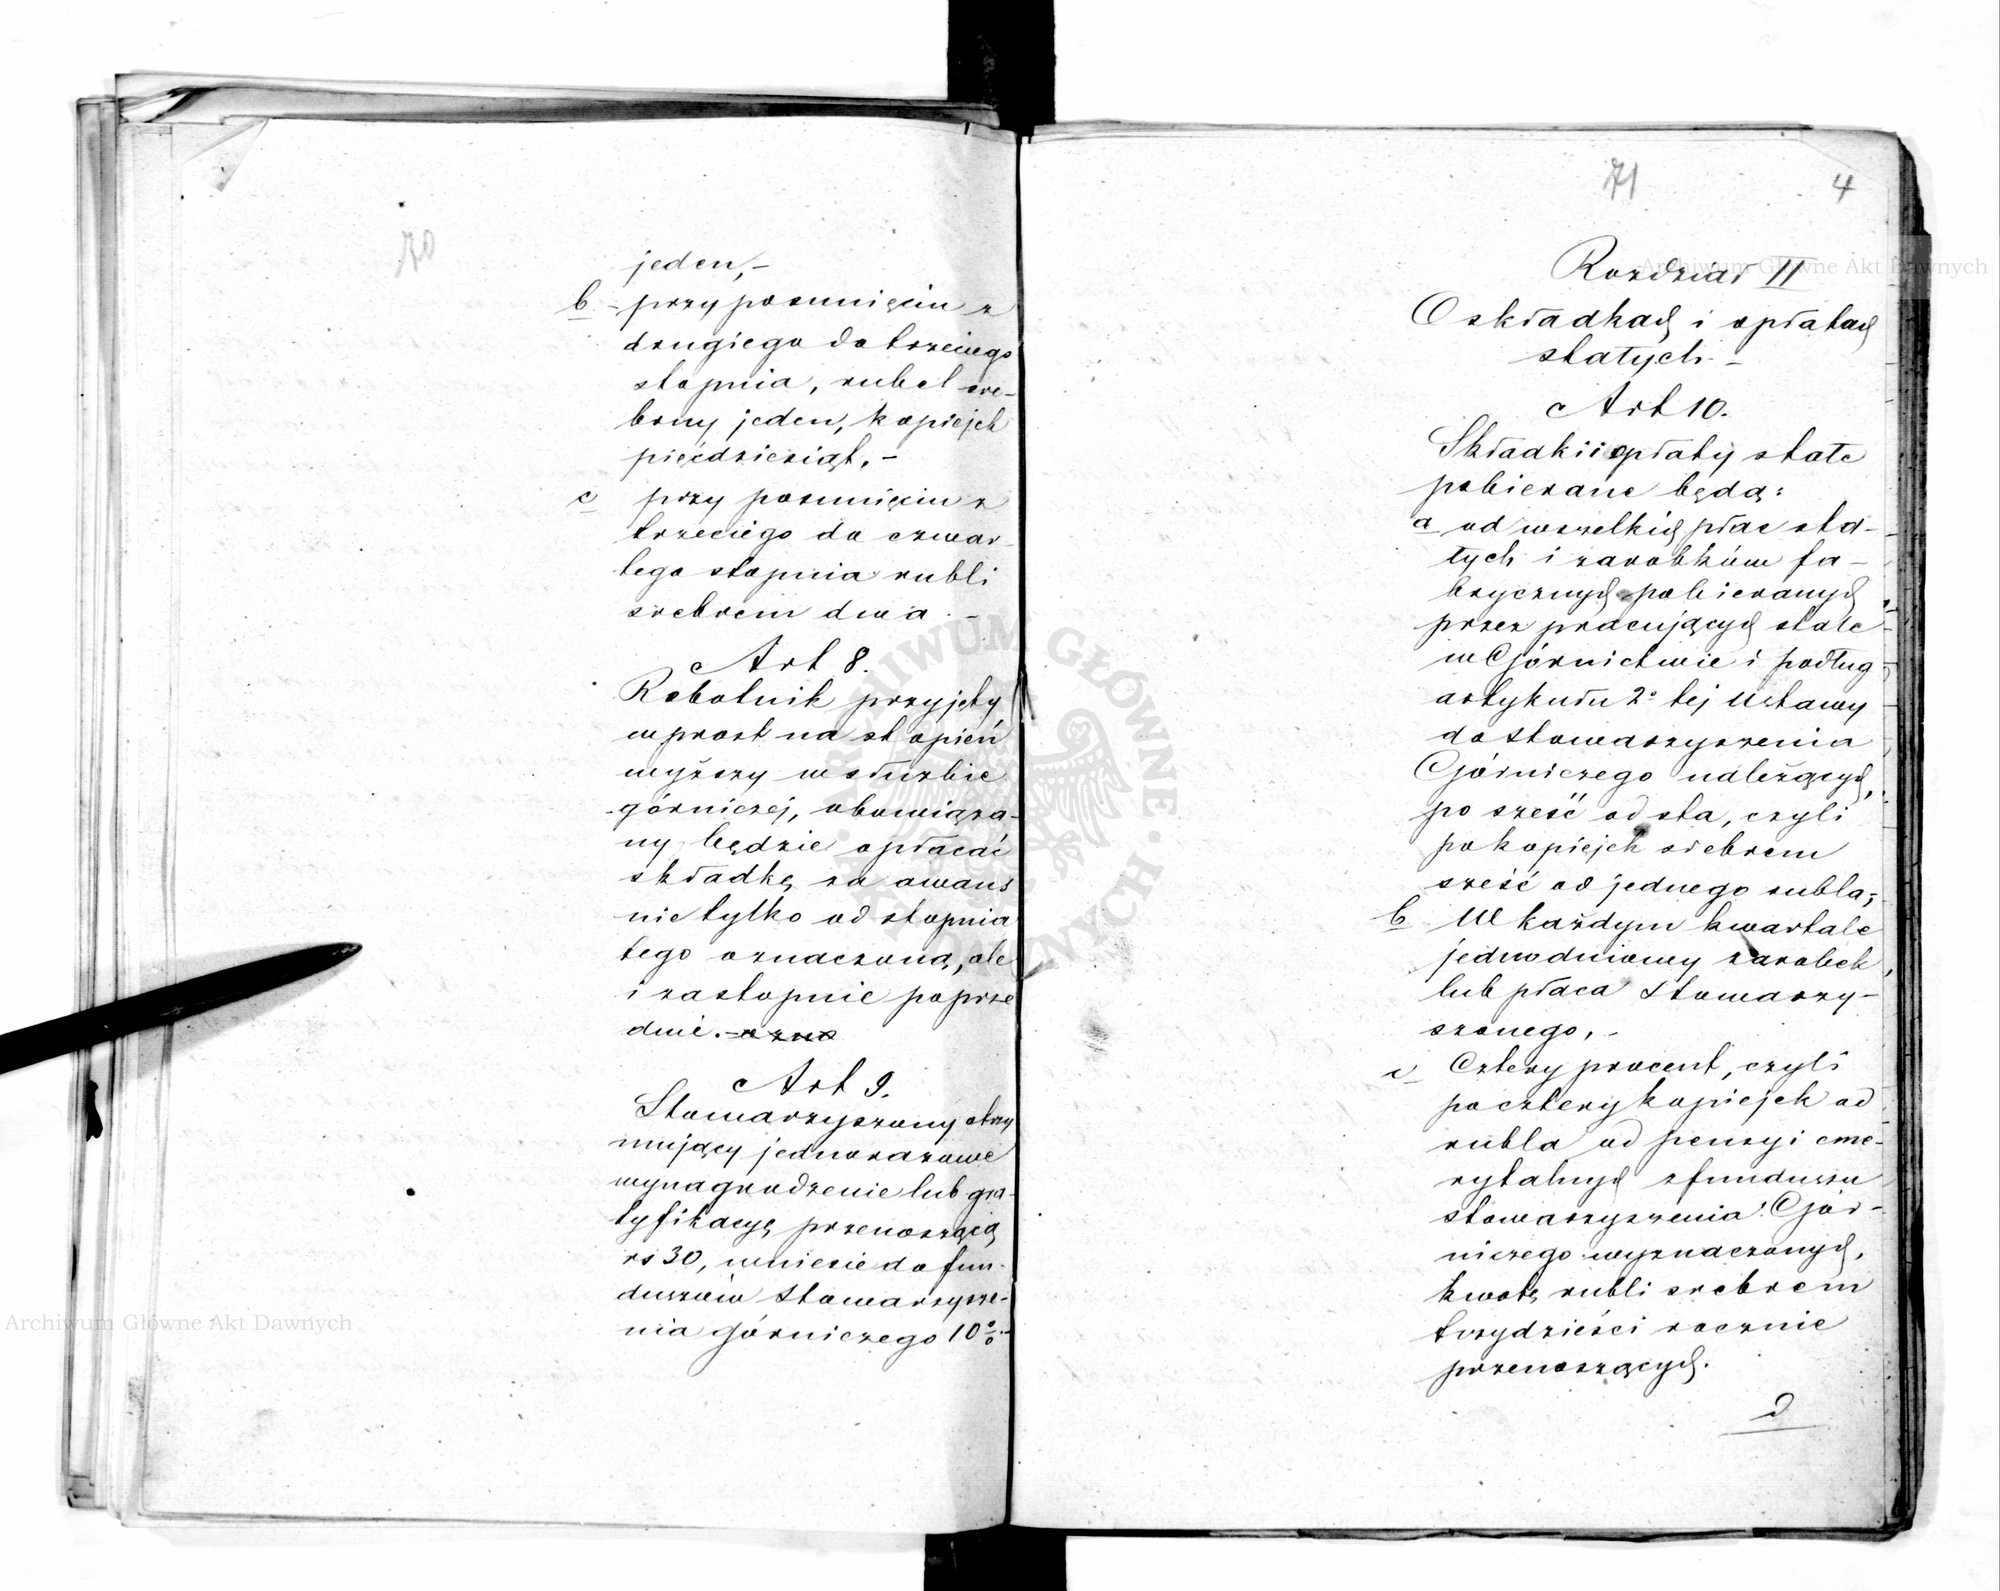 70
jeden,-
b - przy posunięciu z
drugiego do trzeciego
stopnia, rubel sre-
brny jeden, kopiejek
pięćdziesiąt. -
c przy posunięciu z
trzeciego do czwar-
tego stopnia rubli
srebrem dwa. -
Art 8.
Robotnik przyjęty
wprost na stopień
wyższy w służbie
górniczej, obowiąza-
ny będzie opłacać
składkę za awans
nietylko od stopnia
tego oznaczoną, ale
i za stopnie poprze
dnie.
Art 9.
Stowarzyszony otrzy
mujący jednorazowe
wynagrodzenie lub gra-
tyfikacyę przenoszącą
rs 30, wniesie do fun-
duszów Stowarzysze-
nia górniczego 10%-
71 4
Rozdział II
O składkach i opłatach
stałych -
Art 10.
Składki i opłaty stałe
pobierane będą:
a od wszelkich płac sta-
łych i zarobków fa-
brycznych pobieranych
przez pracujących stale
w Górnictwie i podług
artykułu 2º tej Ustawy
do Stowarzyszenia
Górniczego należących,
po sześć od sta, czyli
po kopiejek srebrem
sześć od jednego rubla;
b W każdym kwartale
jednodniowy zarobek
lub płaca Stowarzy-
szonego, -
c Cztery procent, czyli
po cztery kopiejek od
rubla od pensyi eme-
rytalnych z funduszu
stowarzyszenia Gór-
niczego wyznaczonych,
kwotę rubli srebrem
trzydzieści rocznie
przenoszących.
d
Archiwum Główne Akt Dawnych
Archiwum Główne Akt Dawnych
ARCHIWUM GŁÓWNE AKT DAWNYCH